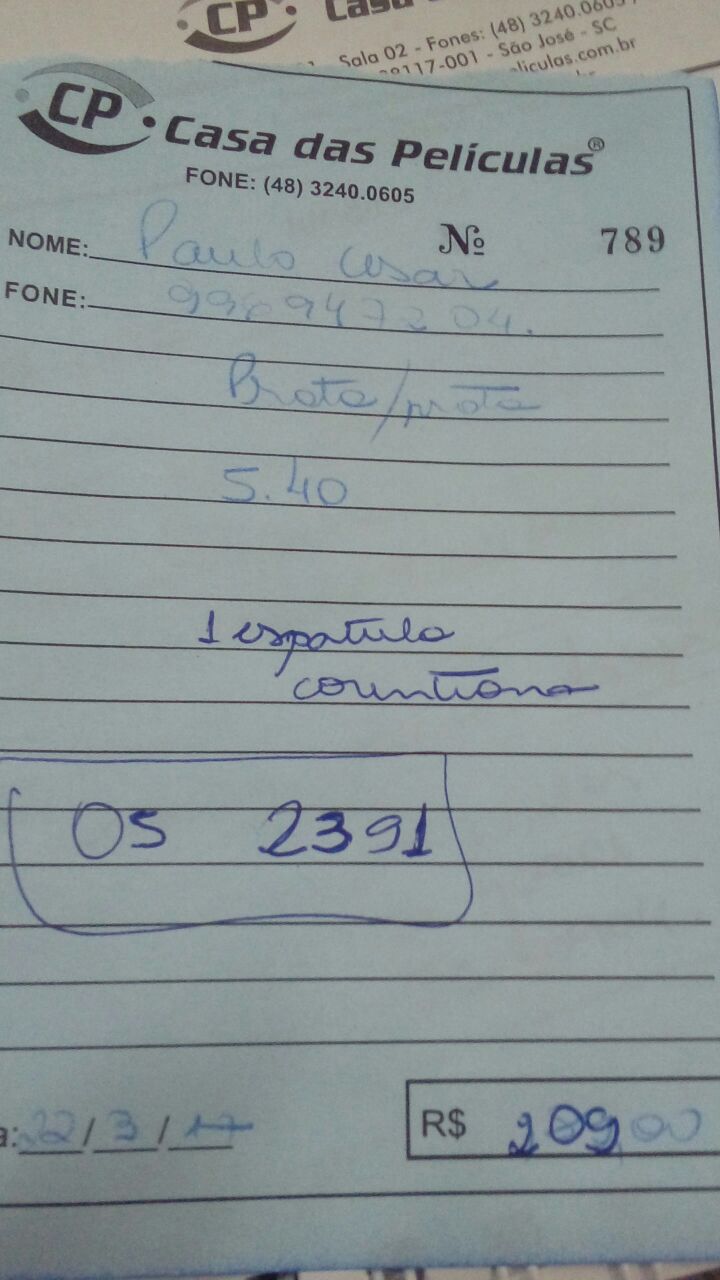 CP Casa
Sala 02 - Fones: (48) 3240.0605
117-001 - São José - SC
eliculas.com.br
CP Casa das Películas®
FONE: (48) 3240.0605
Nº 789
NOME: Paulo Cesar
FONE:
Prata/prata
5.40
1 espatula
OS 2391
a: 22/3/17 R$ 209,00